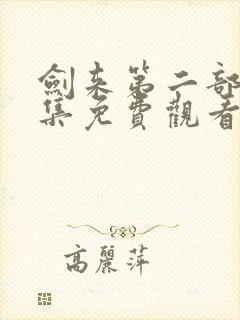 劍來第二部
集免費觀看
高麗萍